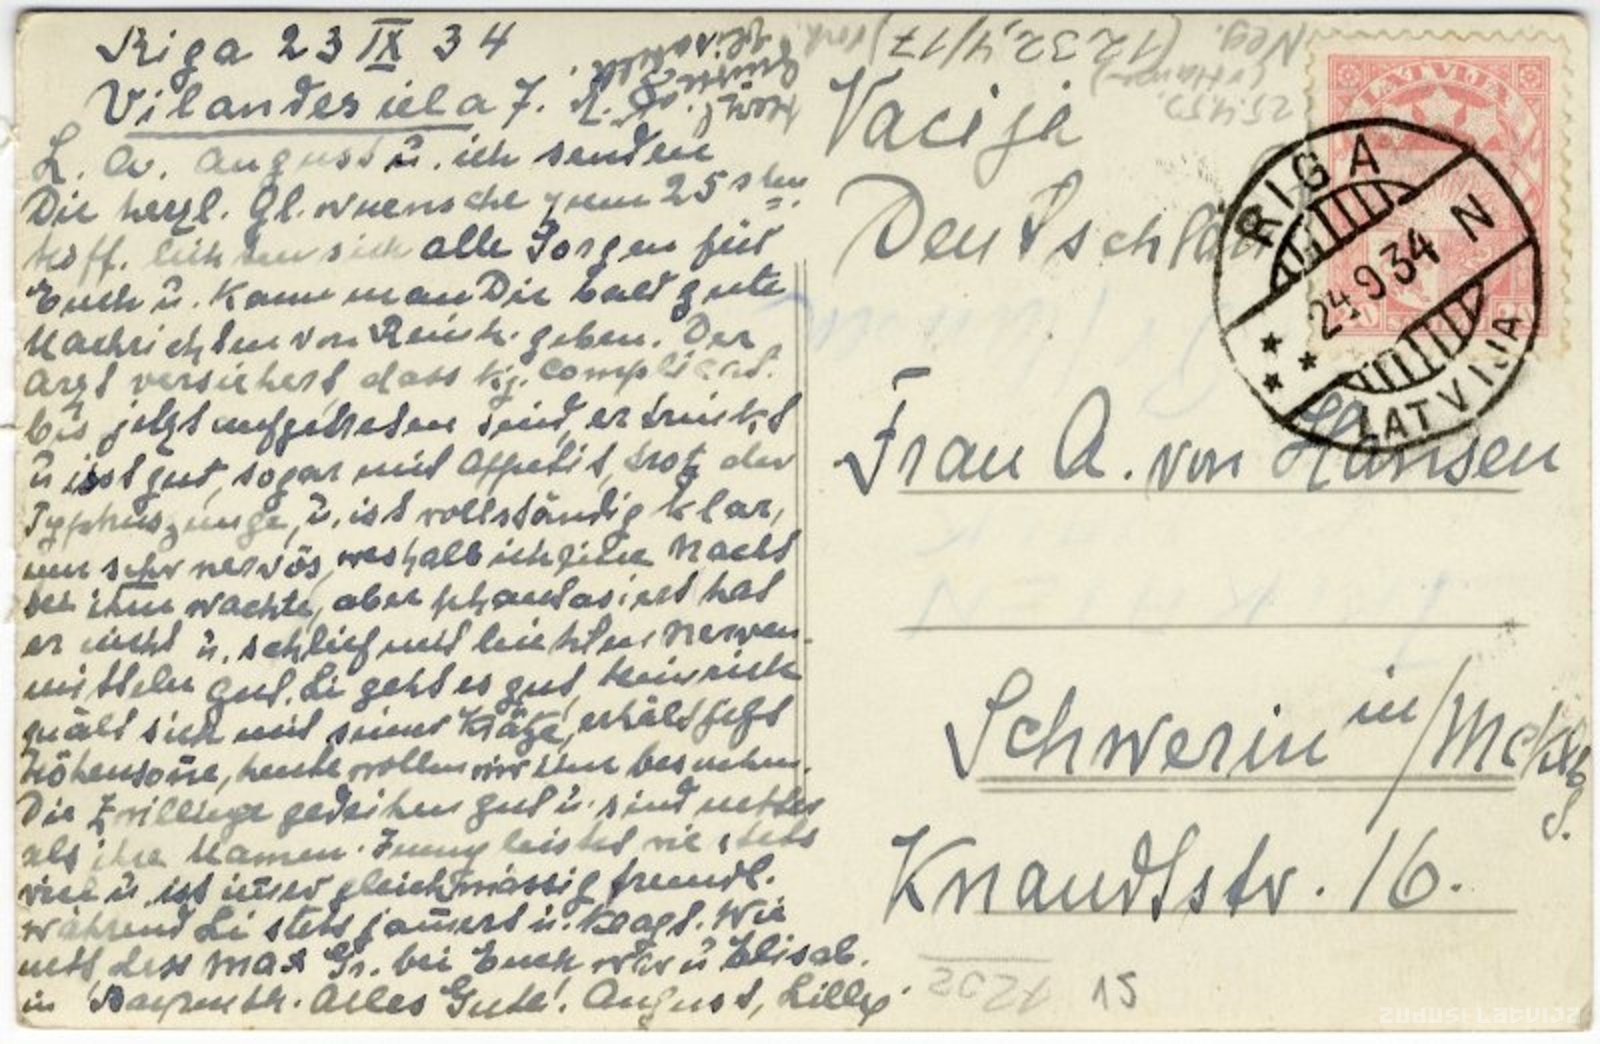 Riga 23 IX 34
Vilandes iela 7.
L. A. August u. ich senden
Dir herzl. Gl. wuensche zum 25sten.
hoff. lichten sich alle Sorgen für
Euch u. kann man Dir bald gute
Nachrichten von Reinh. geben. Der
Arzt versichert dass kg. Complicat.
bis jetzt aufgetreten sind, er trinkt
u isst gut, sogar mit Appetit, trotz der
Typhuszunge, u. ist vollständig klar,
nur sehr nervös, weshalb ich eine Nacht
bei ihm wachte, aber phantasiert hat
er nicht u. schlief mit leichten Nerven-
mitteln gut. Li geht es gut, Heinrich
quält sich mit seiner Krätze, erhält jetzt
Höhensoñe, heute wollen wir ihn besuchen.
Die Zwillinge gedeihen gut u. sind netter
als ihre Namen. Jenny leistet wie stets
viel u. ist im̄er gleichmässig freundl.
während Li stets jam̄ert u. klagt. Wie
nett dass Max Gr. bei Euch war u Elisab.
in Bayreuth. Alles Gute! August, Lilly.
Neg.
(1232,4/17)
25.4.53
Vacija
Deutschland
LATVIJA
RIGA
24.9.34 N
LATVIJA
Frau A. von Hansen
Schwerin in/Mcklb
S.
Knaudtstr. 16.
1202
15
zudusi Latvija